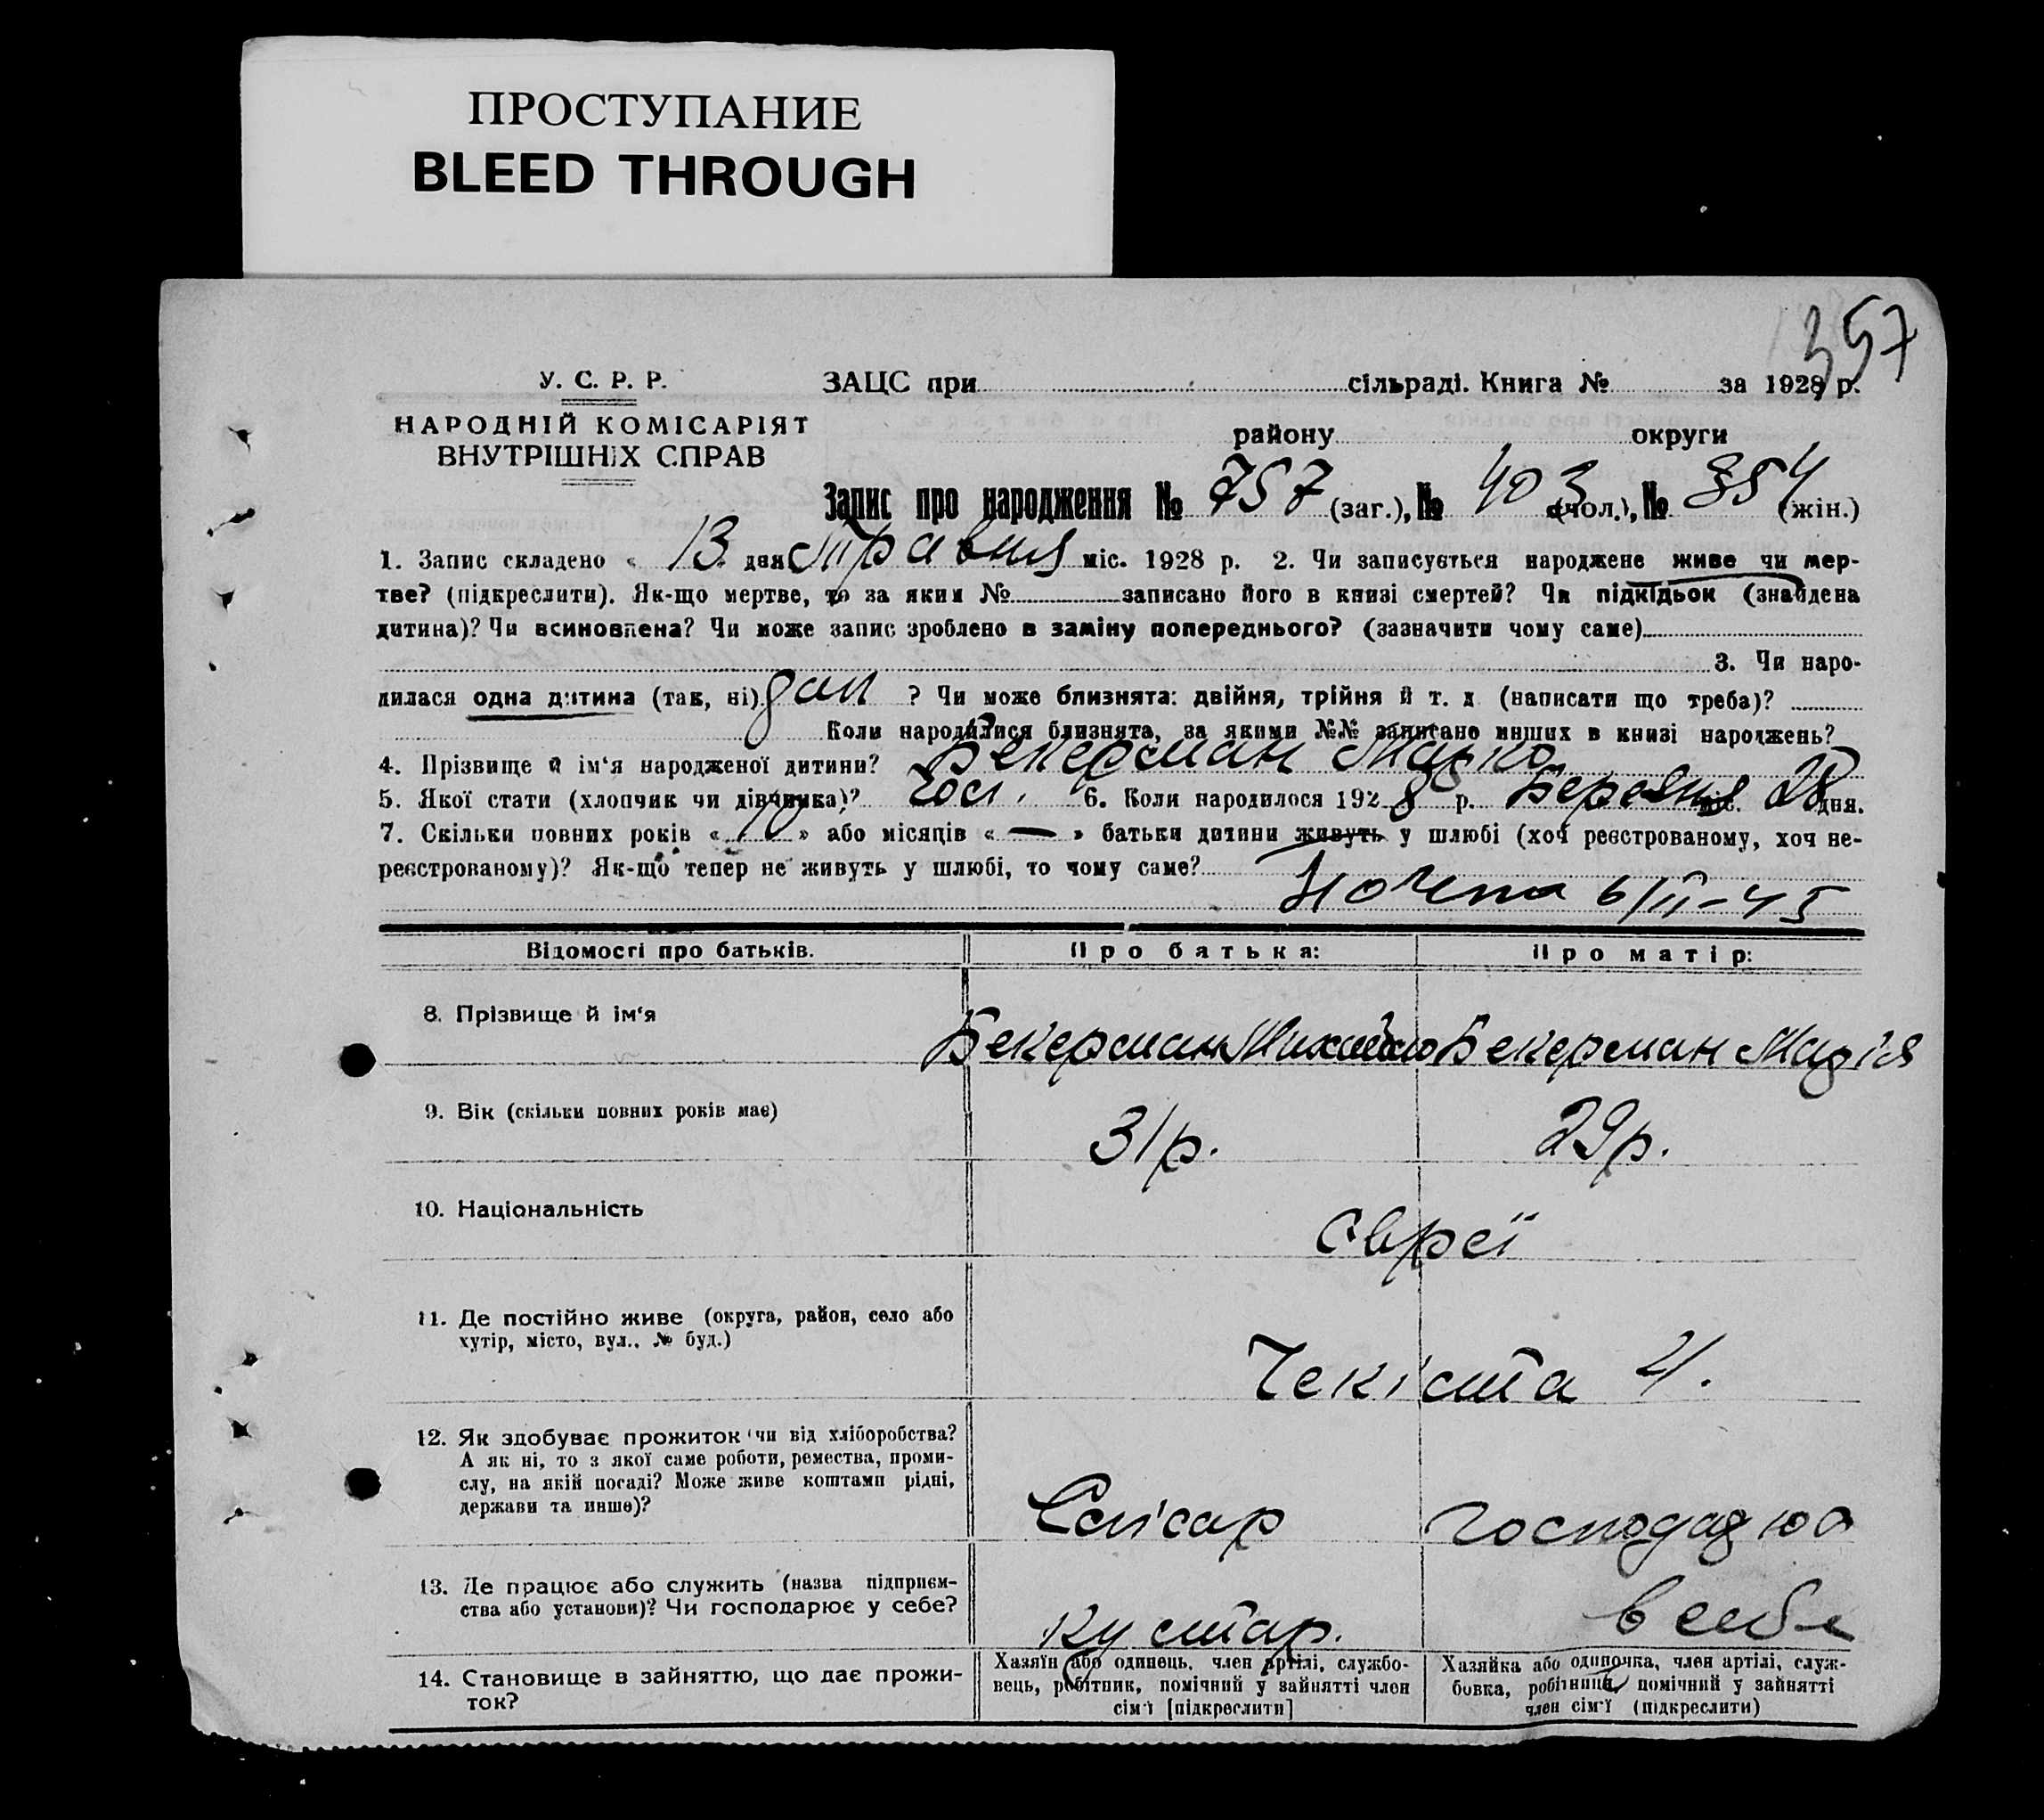 ПРОСТУПАНИЕ
BLEED THROUGH
357
У. С. Р. Р.
НАРОДНІЙ КОМІСАРІЯТ
ВНУТРІШНІХ СПРАВ
ЗАЦС при сільраді. Книга № за 1928 р.
району округи
Запис про народження № 757 (заг.), № 403 (чол.), № 354 (жін.)
1. Запис складено « 13 дня травня міс. 1928 р. 2. Чи записується народжене живе чи мер-
тве? (підкреслити). Як-що мертве, то за яким № записано його в книзі смертей? Чи підкідьок (знайдена
дитина)? Чи всиновлена? Чи може запис зроблено в заміну попереднього? (зазначити чому саме)
3. Чи наро-
дилася одна дитина (так, ні) ? Чи може близнята: двійня, трійня й т. д (написати що треба)?
Коли народилися близнята, за якими №№ записано инших в книзі народжень?
4. Прізвище й ім‘я народженої дитини? Бекерман Марко
5. Якої статі (хлопчик чи дівчинка)? 6. Коли народилося 1928 р. Березня міс. 28 дня.
7. Скільки повних років « » або місяців « — » батьки дитини живуть у шлюбі (хоч реєстрованому, хоч не-
реєстрованому)? Як-що тепер не живуть у шлюбі, то чому саме?
6/II-45
Відомості про батьків.
Про батька:
Про матір:
8. Прізвище й ім‘я
Бекерман Михайло
Бекерман Марія
9. Вік (скільки повних років має)
31р.
29р.
10. Національність
євреї
11. Де постійно живе (округа, район, село або
хутір, місто, вул., № буд.)
Чекіста 4.
12. Як здобуває прожиток чи від хліборобства?
А як ні, то з якої саме роботи, ремества, проми-
слу, на якій посаді? Може живе коштами рідні,
держави та инше)?
Слісар
господарює
13. Де працює або служить (назва підприєм-
ства або установи)? Чи господарює у себе?
кустар.
в себе
14. Становище в зайняттю, що дає прожи-
ток?
Хазяїн або одинець, член артілі, службо-
вець, робітник, помічний у зайнятті член
сім‘ї [підкреслити]
Хазяйка або одиночка, член артілі, служ-
бовка, робітниця, помічний у зайнятті
член сім‘ї (підкреслити)